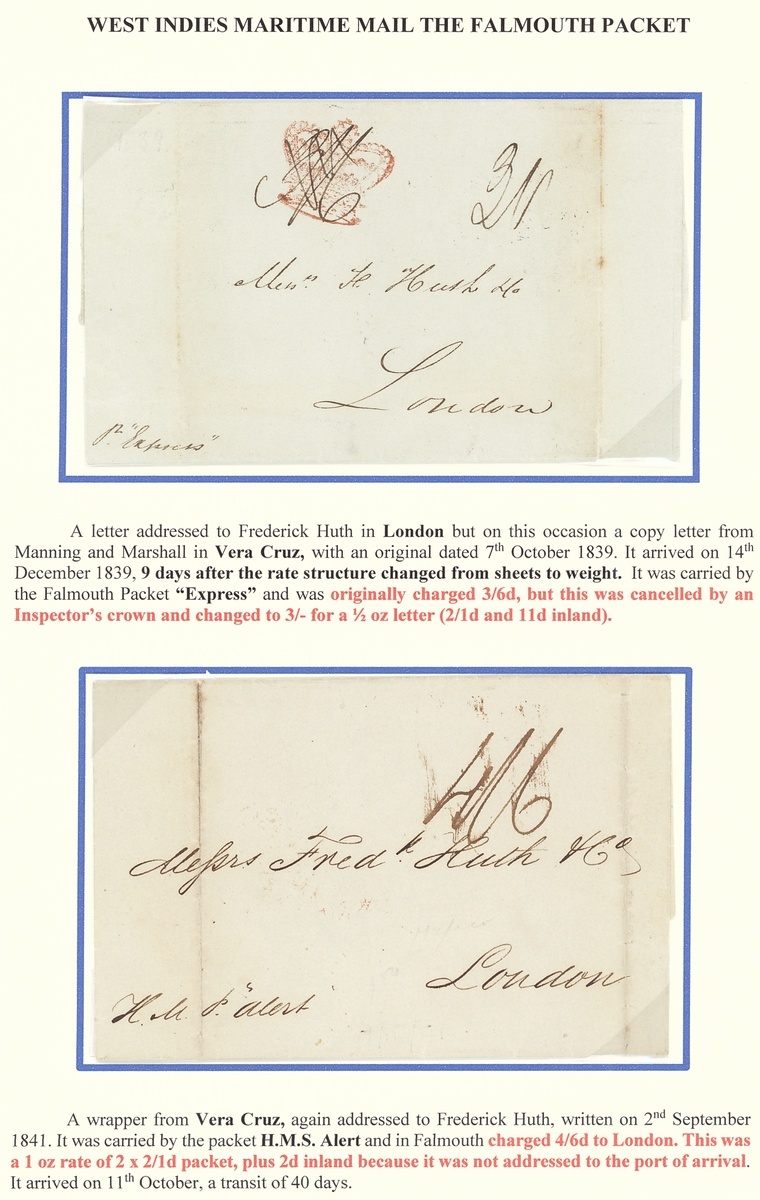 WEST INDIES MARITIME MAIL THE FALMOUTH PACKET
3/
Messrs F. Huth & Co
London
Pr "Express"
A letter addressed to Frederick Huth in London but on this occasion a copy letter from
Manning and Marshall in Vera Cruz, with an original dated 7th October 1839. It arrived on 14th
December 1839, 9 days after the rate structure changed from sheets to weight. It was carried by
the Falmouth Packet “Express” and was originally charged 3/6d, but this was cancelled by an
Inspector’s crown and changed to 3/- for a ½ oz letter (2/1d and 11d inland).
4/6
Messrs Fredk. Huth & Co
London
H. M. P. "Alert"
A wrapper from Vera Cruz, again addressed to Frederick Huth, written on 2nd September
1841. It was carried by the packet H.M.S. Alert and in Falmouth charged 4/6d to London. This was
a 1 oz rate of 2 x 2/1d packet, plus 2d inland because it was not addressed to the port of arrival.
It arrived on 11th October, a transit of 40 days.